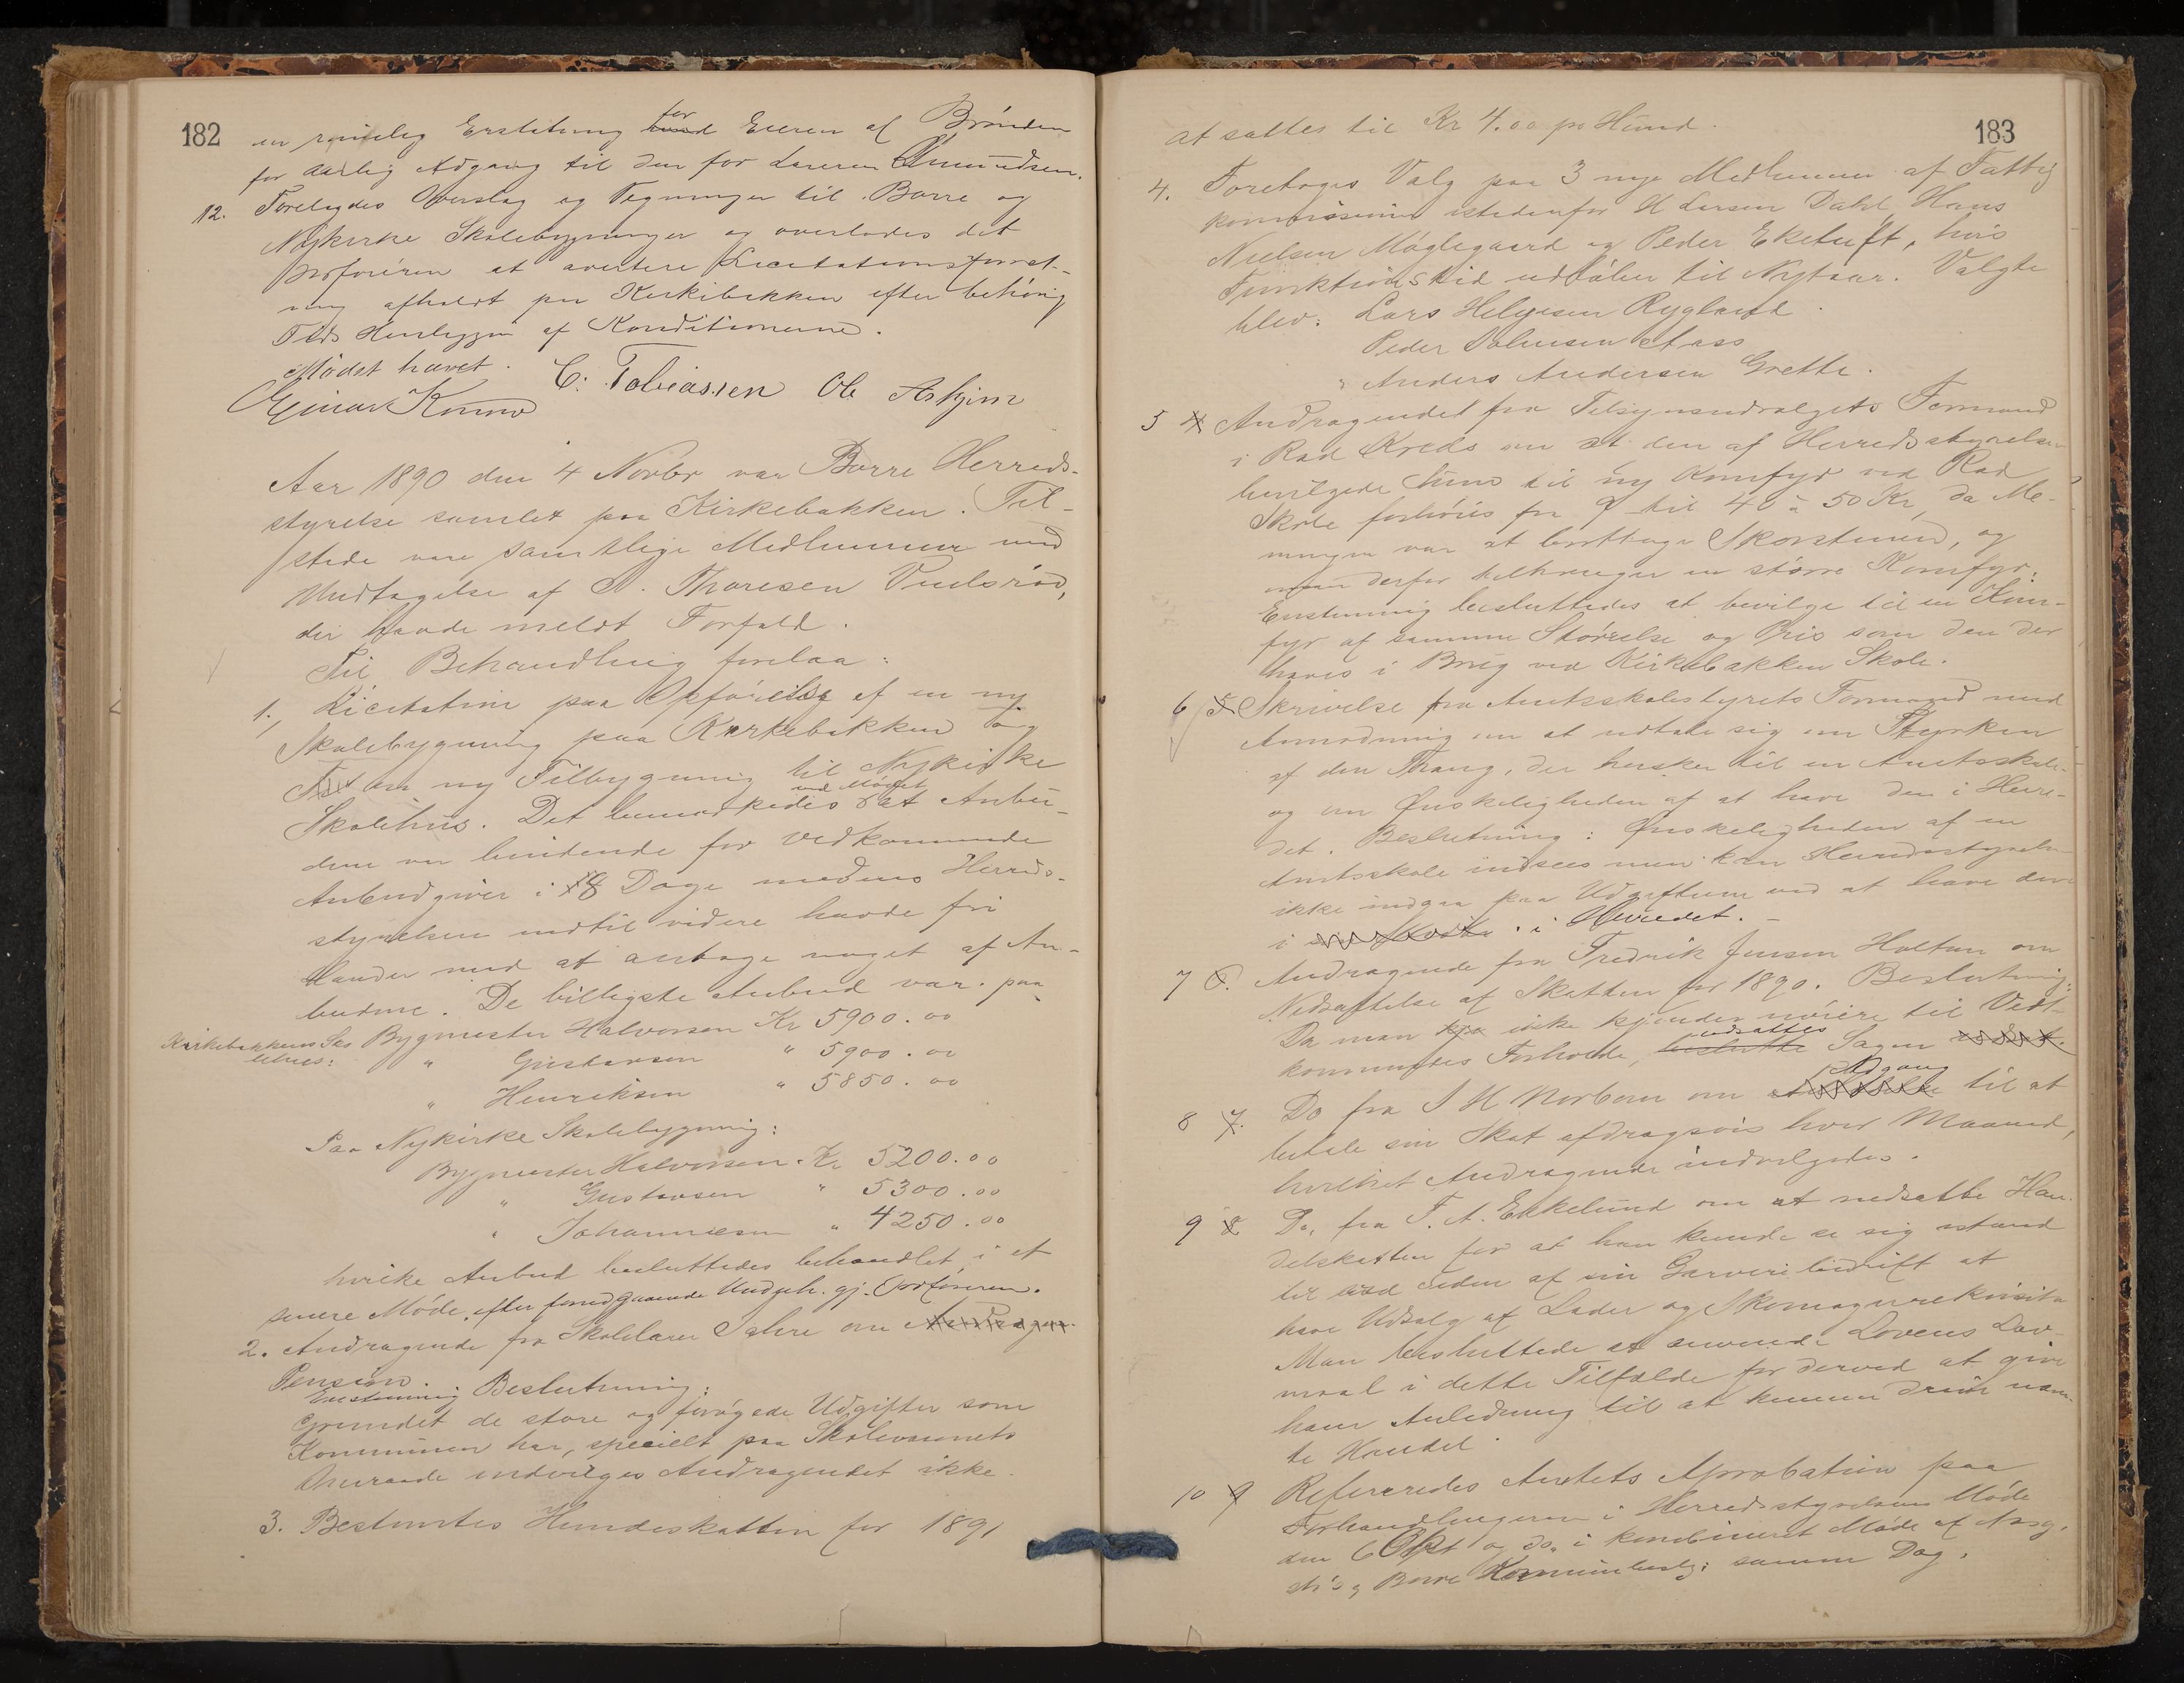 182
en rimelig Erstatning for Eieren af Brønden
for aarlig Adgang til den for Læreren Amundsen.
12. Forelagdes Overslag og Tegninger til Borre og
Nykirke Skolebygninger og overlodes det
Ordføreren at avertere Licitationsforret-
ning afholdt paa Kirkebakken efter behørig
Tids Henliggen af Konditionerne.
Mødet hævet.
C. Tobiassen Ole Askjem
Aar 1890 den 4 Novbr var Borre Herreds-
styrelse samlet paa Kirkebakken. Til-
stede vare samtlige Medlemmer med
Undtagelse af A. Thoresen
der havde meldt Forfald.
Til Behandling forelaa:
1. Licitation paa Opførelse af en ny
Skolebygning paa Kirkebakken og
en ny Tilbygning til Nykirke
Skolehus. Det bemærkedes ved Mødet at Anbu-
dene var bindende for vedkommende
Anbudgiver i 18 Dage medens Herreds-
styrelsen indtil videre havde fri
Hænder med at antage noget af An-
budene. De billigste Anbud var paa
Kirkebakkens Sko
lehus:
Bygmester Halvorsen Kr 5900.00
" Gustavsen " 5900.00
" Henriksen " 5850.00
Paa Nykirke Skolebygning:
Bygmester Halvorsen Kr 5200.00
" Gustavsen " 5300.00
" Johannesen " 4250.00
hvilke Anbud besluttedes behandlet i et
senere Møde, efter forudgaaende Undgeh. gj. Ordføreren.
2. Andragende fra Skolelærer om
Pension.
Enstemmig Beslutning:
Grundet de store og forøgede Udgifter som
Kommunen har, specielt paa Skolevæsenets
Omraade indvilges Andragendet ikke.
3. Bestemtes Hundeskatten for 1891
183
at sættes til Kr 4.00 pr Hund.
4. Foretoges Valg paa 3 nye Medlemmer af Fattig
kommissionen istedenfor H Larsen Dahl, Hans
Nielsen Møglegaard og Peder Eketuft, hvis
Funktionstid udløber til Nytaar. Valgte
blev: Lars Helgesen Rygland
Peder Johnsen Aass
" Anders Andersen Grette.
5 4 Andragendet fra Tilsynsudvalgets Formand
i Rød Kreds om at den af Herredsstyrelsen
bevilgede Sum til ny Komfyr ved Rød
Skole forhøies fra ? til 40 à 50 Kr, da Me-
ningen var at borttage Skorstenen, og
man derfor tiltrænger en større Komfyr.
Enstemmig besluttedes at bevilge til en Kom-
fyr af samme Størrelse og Pris som den der
haves i Brug ved Kirkebakken Skole.
6 5 Skrivelse fra Amtsskolestyrets Formand med
Anmodning om at udtale sig om Styrken
af den Trang, der hersker til en Amtsskole
og om Ønskeligheden af at have den i Herre-
det. Beslutning: Ønskeligheden af en
Amtsskole indsees men kan Herredsstyrelsen
ikke indgaa paa Udgifterne ved at have den
i i Herredet.
7 6. Andragende fra Fredrik Jensen Holtan om
Nedsættelse af Skatten for 1890. Beslutning:
Da man ikke kjender nøiere til Ved-
kommendes Forholde, udsattes Sagen
8 7. Do fra om Adgang til at
betale sin Skat afdragsvis hver Maaned,
hvilket Andragende indvilgedes.
9 8 Do. fra F. A. Enkelund om at nedsætte Han-
delsskatten for at han kunde se sig istand
til ved siden af sin Garveribedrift at
have Udsalg af Læder og Skomagerrekvisita
Man besluttede at anvende Lovens Lav-
maal i dette Tilfælde for derved at give
ham Anledning til at kunne drive nævn-
te Handel.
10 9 Refereredes Amtets Aprobation paa
Forhandlingerne i Herredsstyrelsens Møde
den 6 Okt og do. i kombineret Møde af
og Borre samme Dag.